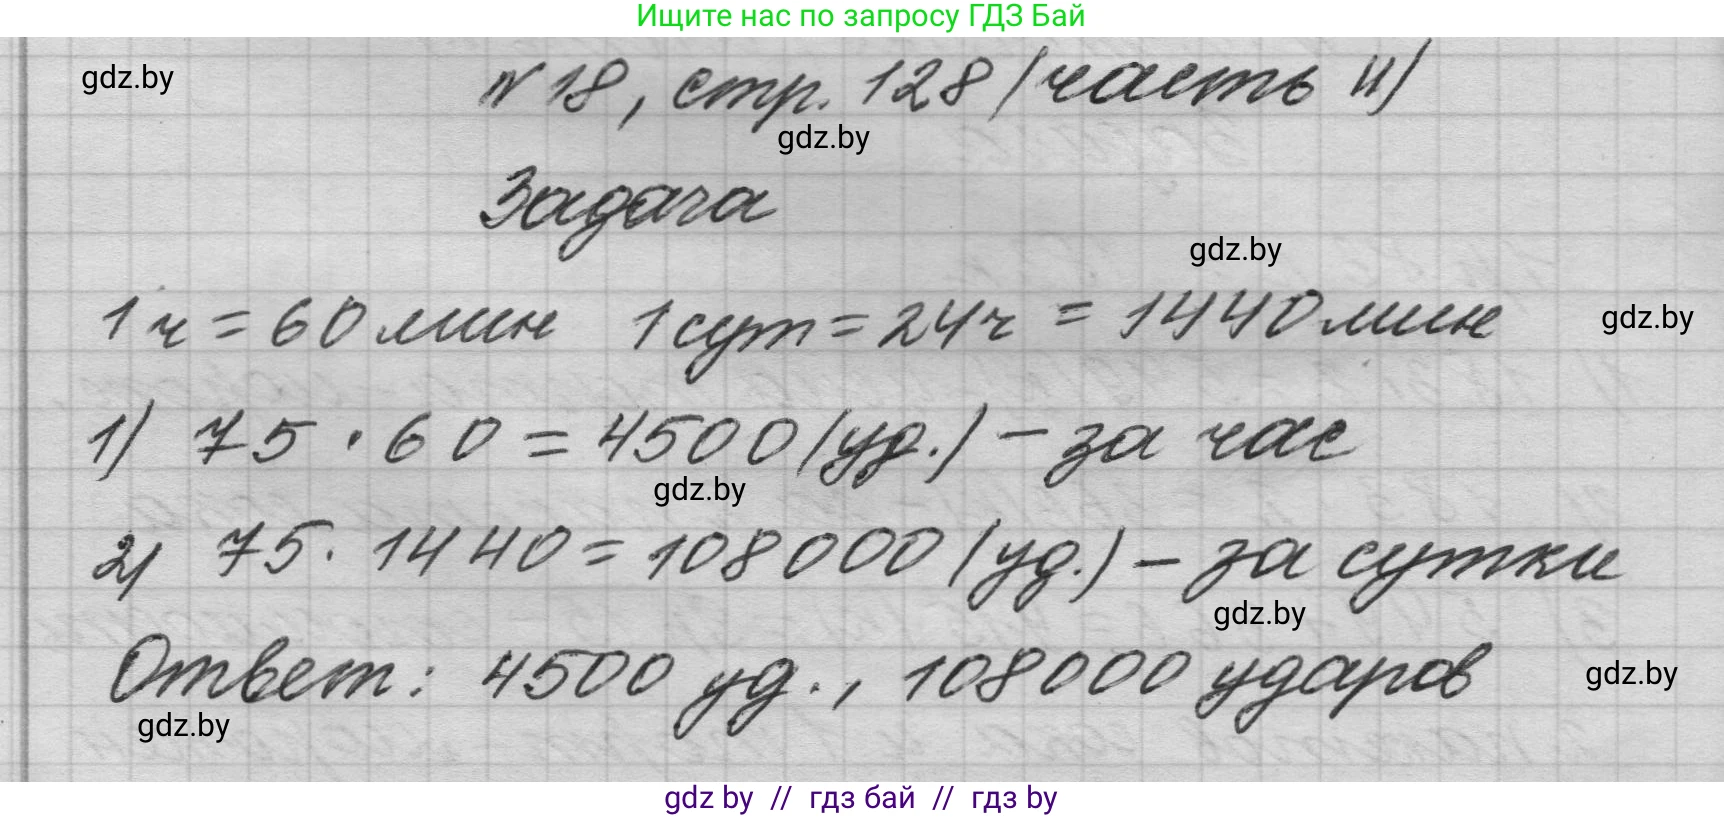 Ищите нас по запросу ГДЗ Бай
gdz.by
№ 18, стр. 128 (часть II)
gdz.by
Задача
gdz.by
1 ч = 60 мин 1 сут = 24 ч = 1440 мин
gdz.by
1) 75 · 60 = 4500 (уд.) – за час
gdz.by
2) 75 · 1440 = 108000 (уд.) – за сутки
gdz.by
Ответ: 4500 уд., 108000 ударов
gdz.by
gdz.by
gdz by // гдз бай // гдз by